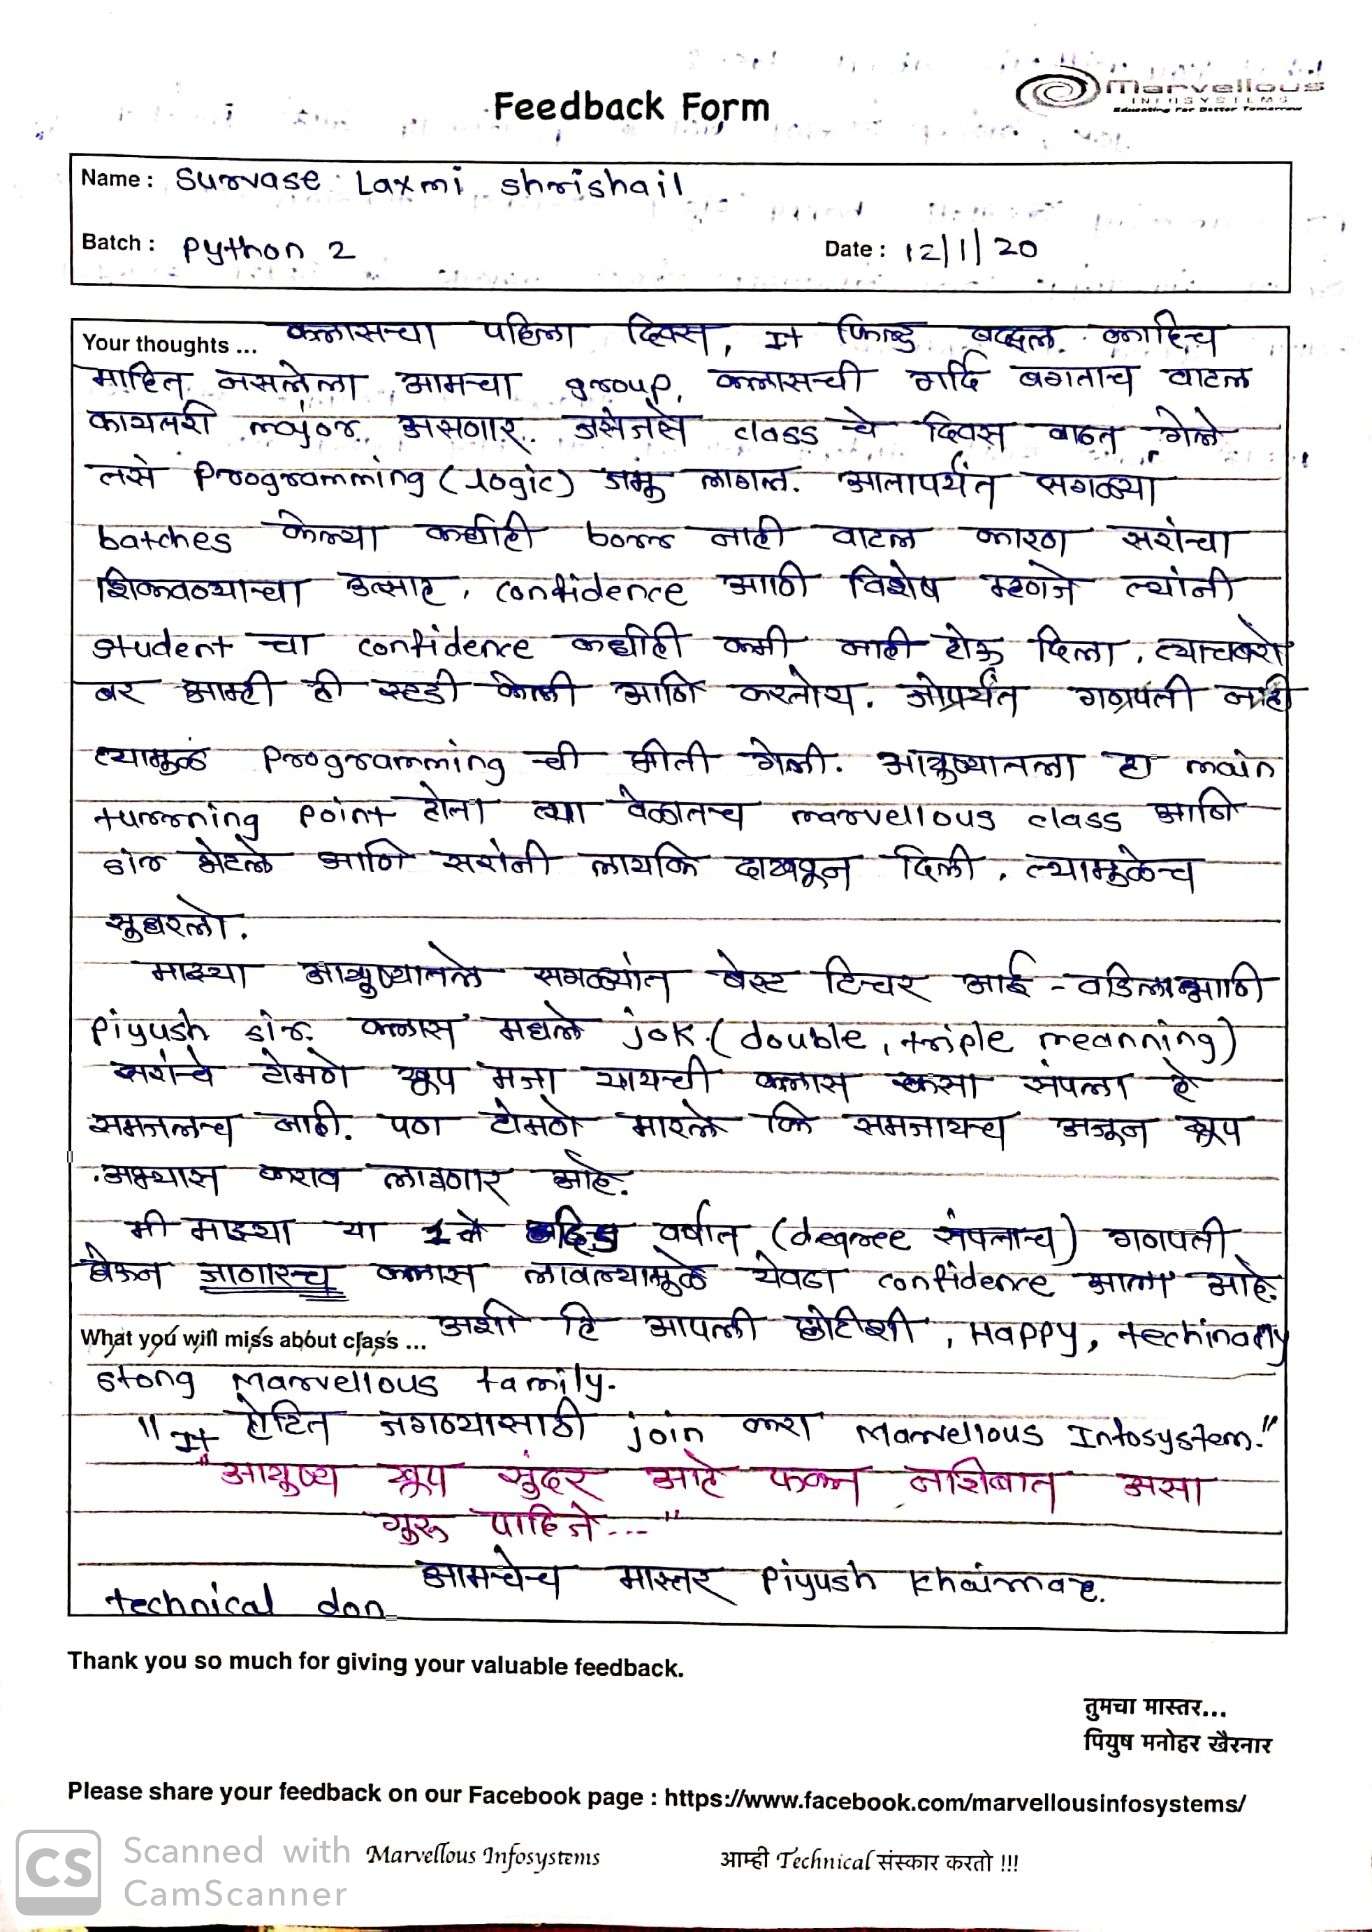 Feedback Form
Marvellous
INFOSYSTEMS
Educating For Better Tomorrow
Name : Survase Laxmi Shrishail
Batch : Python 2
Date : 12/1/20
Your thoughts ... क्लासचा पहिला दिवस, It फिल्ड बद्दल काहिच
माहित नसलेला आमचा group, क्लासची गर्दि बगताच वाटल
कायतरी major असणार. जसेजसे class चे दिवस वाढत गेले
तसे Programming (logic) जमू लागल. आतापर्यंत सगळ्या
batches केल्या कधीही borr नाही वाटल कारण सरांचा
शिकवण्याचा उत्साह, confidence आणि विशेष म्हणजे त्यांनी
student चा confidence कधीही कमी नाही होऊ दिला, त्याचबरो
बर आम्ही ही स्टडी केली आणि करतोय. जोपर्यंत गणपती नाही
त्यामुळं Programming ची भीती गेली. आयुष्यातला हा main
turrning point होता त्या वेळातच marvellous class आणि
सर भेटले आणि सरांनी लायकि दाखवून दिली, त्यामुळेच
सुधरलो.
माझ्या आयुष्यातले सगळ्यांत बेस्ट टिचर आई-वडिल आणि
Piyush सर. क्लास मधले jok.(double, triple meanning)
सरांचे टोमणे खूप मजा यायची क्लास कसा संपला हे
समजलच नाही. पण टोमणे मारले कि समजायच अजून खूप
अभ्यास कराव लागणार आहे.
मी माझ्या या 1ले वर्षात (degree संपताच) गणपती
बेऊन जाणारच क्लास लावल्यामुळे येवढा confidence आला आहे.
What you will miss about class ... अशी हि आपली छोटीशी, Happy, techinally
stong Marvellous family.
"It होटित जगण्यासाठी join करा Marvellous Infosystem."
"आयुष्य खूप सुंदर आहे फक्त नशिबात असा
गुरु पाहिजे..."
आमचेच मास्तर Piyush Khairnar.
technical don
Thank you so much for giving your valuable feedback.
तुमचा मास्तर...
पियुष मनोहर खैरनार
Please share your feedback on our Facebook page : https://www.facebook.com/marvellousinfosystems/
Marvellous Infosystems
आम्ही Technical संस्कार करतो !!!
CS Scanned with
CamScanner